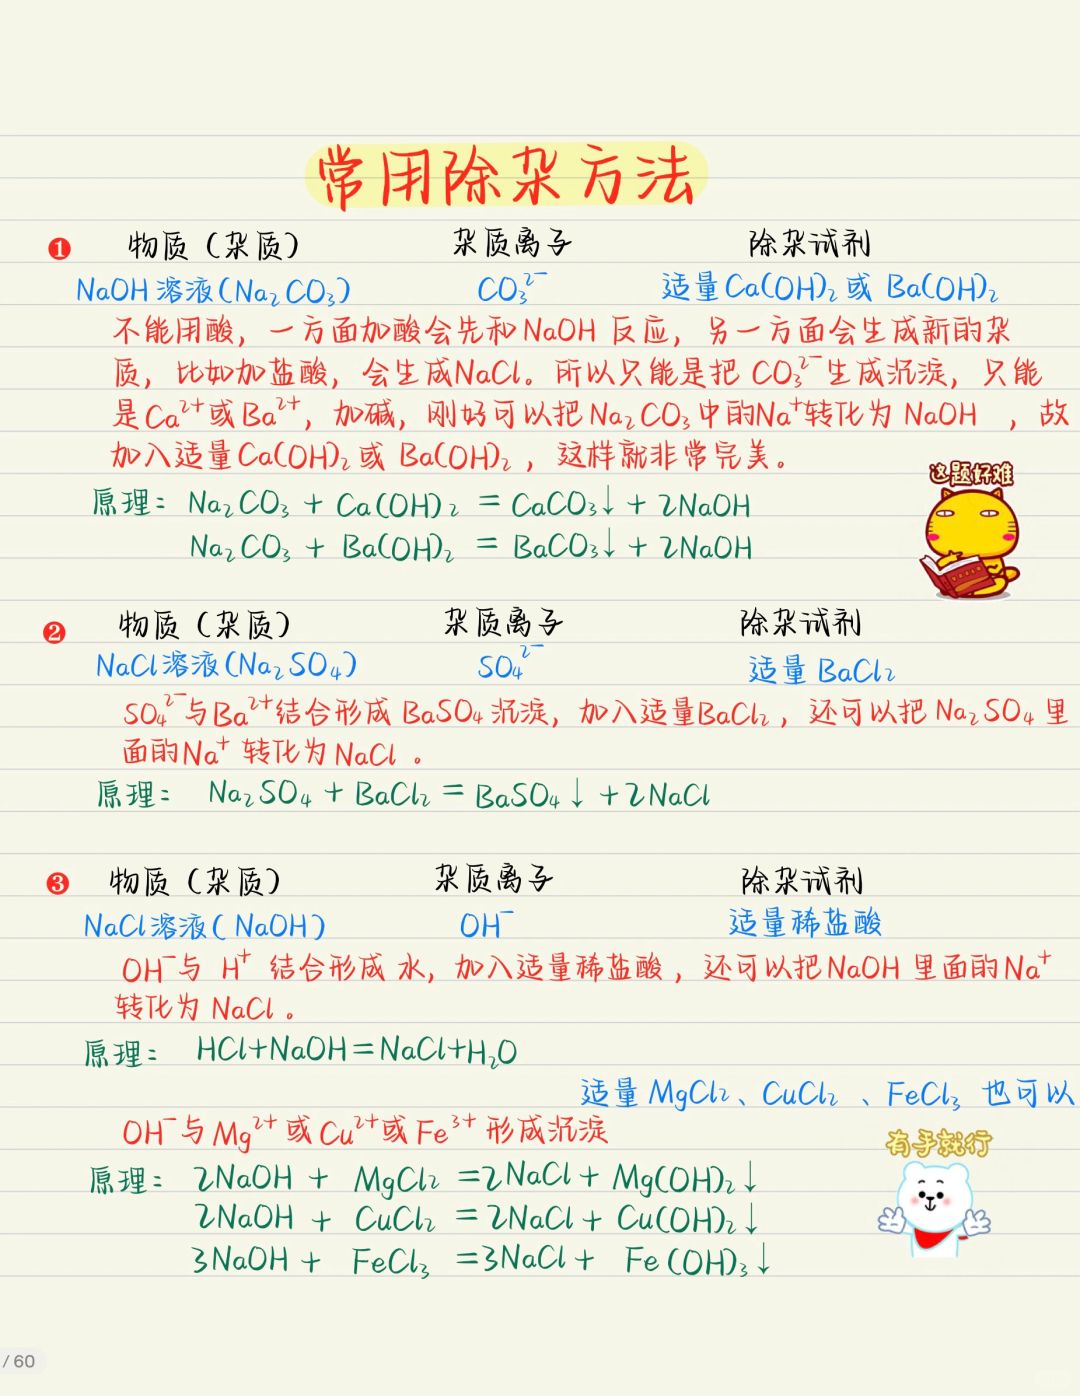 常用除杂方法
❶ 物质（杂质） 杂质离子 除杂试剂
NaOH溶液(Na₂CO₃) CO₃²⁻ 适量Ca(OH)₂或 Ba(OH)₂
不能用酸，一方面加酸会先和NaOH 反应，另一方面会生成新的杂
质，比如加盐酸，会生成NaCl。所以只能是把 CO₃²⁻生成沉淀，只能
是Ca²⁺或Ba²⁺，加碱，刚好可以把Na₂CO₃中的Na⁺转化为 NaOH ，故
加入适量Ca(OH)₂或 Ba(OH)₂，这样就非常完美。
这题好难
原理： Na₂CO₃ + Ca(OH)₂ = CaCO₃↓ + 2NaOH
Na₂CO₃ + Ba(OH)₂ = BaCO₃↓ + 2NaOH
❷ 物质（杂质） 杂质离子 除杂试剂
NaCl溶液(Na₂SO₄) SO₄²⁻ 适量 BaCl₂
SO₄²⁻与Ba²⁺结合形成 BaSO₄沉淀，加入适量BaCl₂，还可以把 Na₂SO₄里
面的Na⁺ 转化为 NaCl 。
原理： Na₂SO₄ + BaCl₂ = BaSO₄↓ +2NaCl
❸ 物质（杂质） 杂质离子 除杂试剂
NaCl溶液( NaOH) OH⁻ 适量稀盐酸
OH⁻与 H⁺ 结合形成 水，加入适量稀盐酸，还可以把NaOH 里面的Na⁺
转化为 NaCl 。
原理： HCl+NaOH=NaCl+H₂O
适量 MgCl₂、CuCl₂ 、FeCl₃ 也可以
OH⁻与Mg²⁺或Cu²⁺或Fe³⁺ 形成沉淀
有手就行
原理： 2NaOH + MgCl₂ =2NaCl + Mg(OH)₂↓
2NaOH + CuCl₂ =2NaCl + Cu(OH)₂↓
3NaOH + FeCl₃ =3NaCl + Fe(OH)₃↓
/ 60